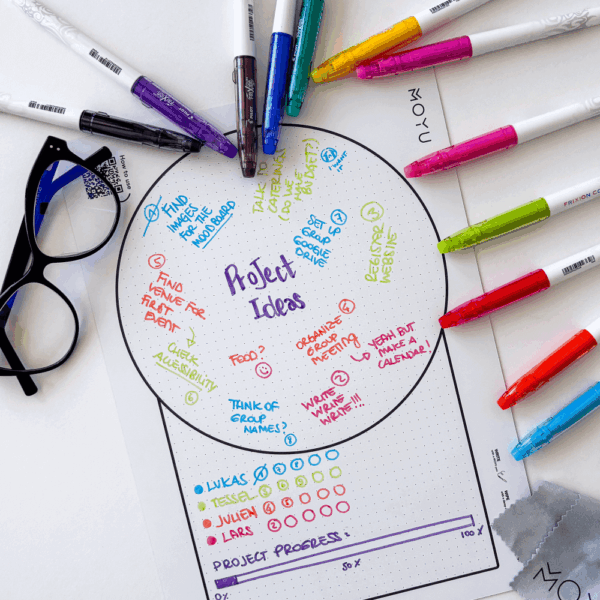 MOYU
How to use
FRIXION CO
TALK TO
CATERINGS!
(DO WE
HAVE
BUDGET?)
4
FIND
IMAGES
FOR THE
MOODBOARD
SET
GROUP
GOOGLE
DRIVE
7
3
REGISTER
WEBSITE
Project
Ideas
5
FIND
VENUE FOR
FIRST
EVENT
CHECK
ACCESSIBILITY
6
FOOD?
ORGANIZE
GROUP
MEETING
YEAH BUT
MAKE A
CALENDAR!
2
WRITE
WRITE
WRITE!!!
THINK OF
GROUP
NAMES?
LUKAS
TESSEL
JULIEN
LARS
PROJECT PROGRESS:
0% 50% 100%
MOYU